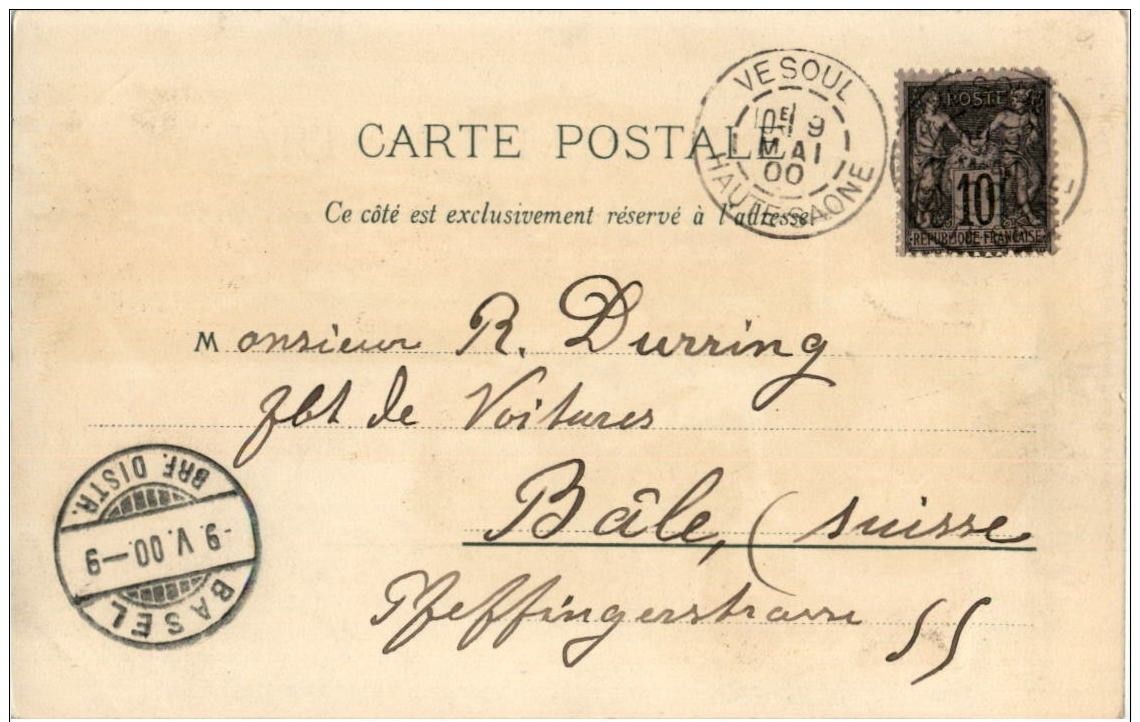 CARTE POSTALE
Ce côté est exclusivement réservé à l'adresse
VESOUL
9
MAI
00
HAUTE-SAONE
POSTE
10
REPUBLIQUE FRANÇAISE
Monsieur R. Durring
fbt de Voitures
Bâle, (Suisse
Pfeffingerstrasse 55
BRF. DISTR.
-9. V. 00.—9
BASEL